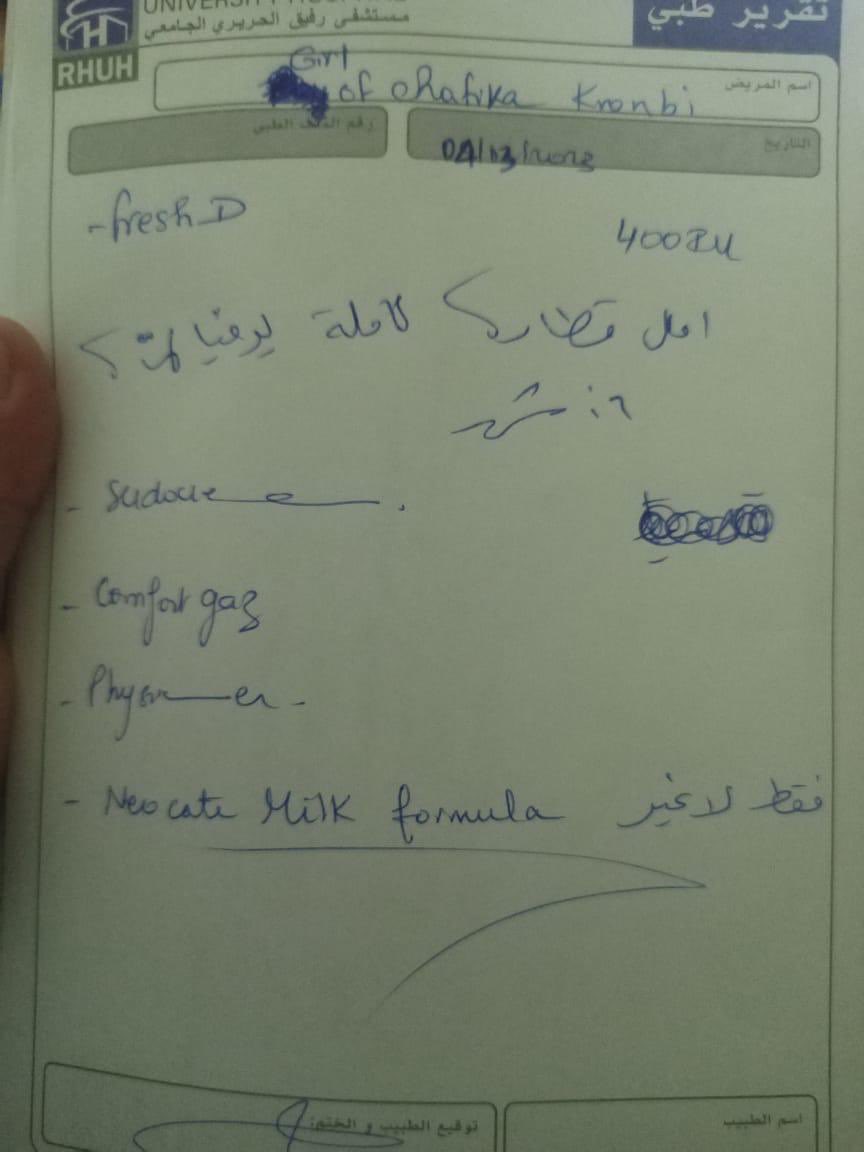 UNIVERSITY HOSPITAL
مستشفى رفيق الحريري الجامعي
تقرير طبي
RHUH
اسم المريض
Girl
of Chafika Kronbi
رقم الملف الطبي
التاريخ
- fresh D 400 IU
كاملة يوميا
- Sudocre
- Comfort gaz
- Physiomer -
- Neocate Milk formula فقط لا غير
توقيع الطبيب و الختم:
اسم الطبيب